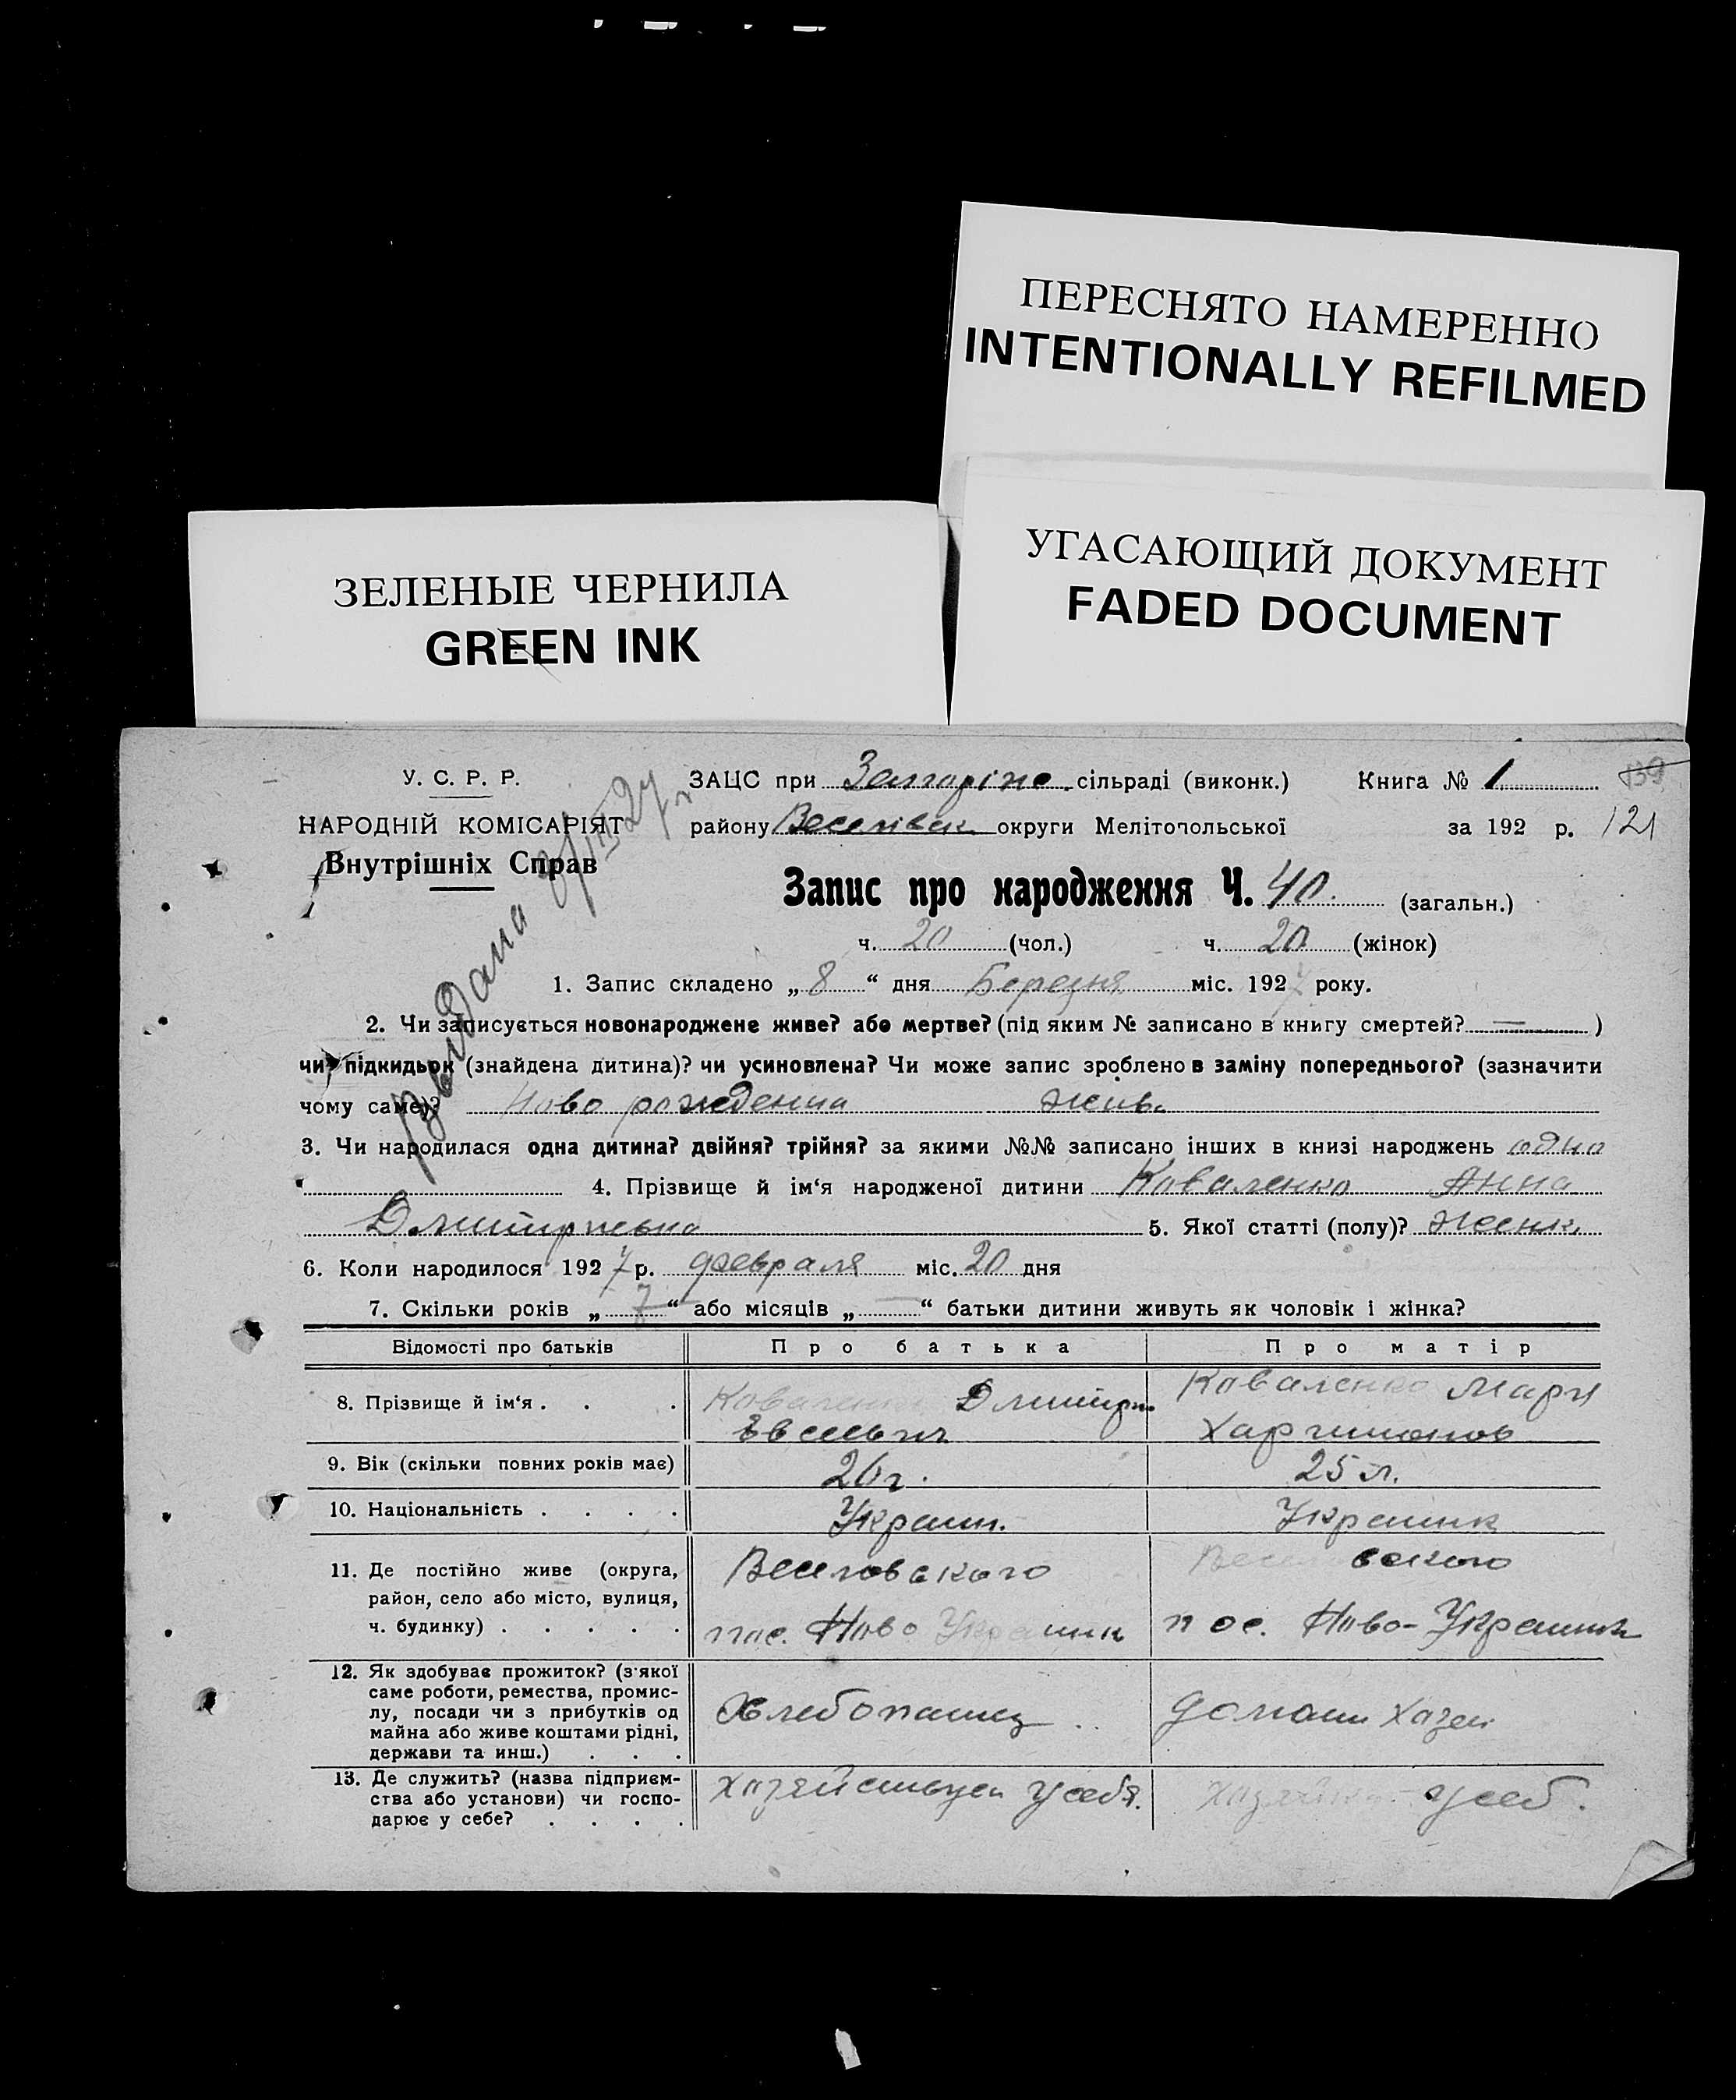 ПЕРЕСНЯТО НАМЕРЕННО
INTENTIONALLY REFILMED
ЗЕЛЕНЫЕ ЧЕРНИЛА
GREEN INK
УГАСАЮЩИЙ ДОКУМЕНТ
FADED DOCUMENT
У. С. Р. Р.
НАРОДНІЙ КОМІСАРІЯТ
Внутрішніх Справ
ЗАЦС при сільраді (виконк.) Книга № 1 139
району Веселівськ округи Мелітопольської за 192 р. 121
Выдана
Запис про народження Ч. 40. (загальн.)
ч. 20 (чол.) ч. 20 (жінок)
1. Запис складено „ 8 “ дня Березня міс. 1927 року.
2. Чи записується новонароджене живе? або мертве? (під яким № записано в книгу смертей? — )
чи підкидьок (знайдена дитина)? чи усиновлена? Чи може запис зроблено в заміну попереднього? (зазначити
чому саме)? Ново рождена жива
3. Чи народилася одна дитина? двійня? трійня? за якими №№ записано інших в книзі народжень одна
4. Прізвище й ім‘я народженої дитини Коваленко Анна
Дмитрівна 5. Якої статті (полу)? женк.
6. Коли народилося 1927 р. февраля міс. 20 дня
7. Скільки років „ 7 “ або місяців „ — “ батьки дитини живуть як чоловік і жінка?
Відомості про батьків Про батька Про матір
8. Прізвище й ім‘я . . . Коваленко Дмитри Коваленко Мари
9. Вік (скільки повних років має) 26 г. 25 л.
10. Національність . . . . Украин. Украинк
11. Де постійно живе (округа, район, село або місто, вулиця, ч. будинку) . . . . . Веселовского Веселовского
пос. Ново Украинк пос. Ново-Украинк
12. Як здобуває прожиток? (з якої саме роботи, ремества, промислу, посади чи з прибутків од майна або живе коштами рідні, держави та инш.) . . . Хлебопашец домаш хазяй
13. Де служить? (назва підприємства або установи) чи господарює у себе? . . . . у себя. у себ.